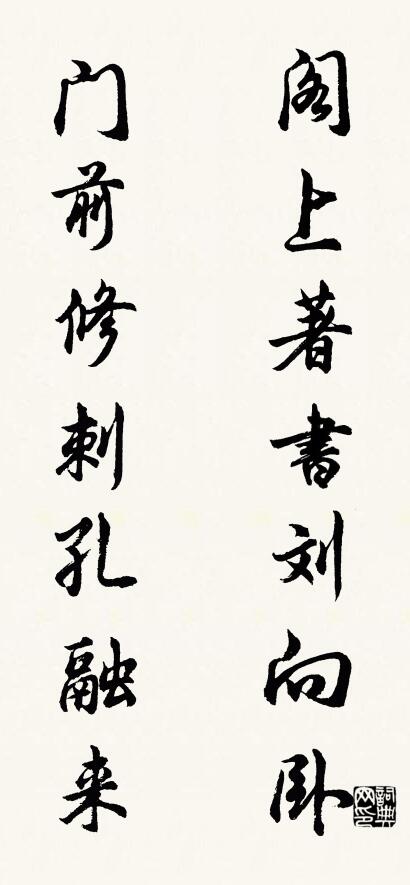 阁上著書刘向卧
门前修刺孔融来
詞典网印